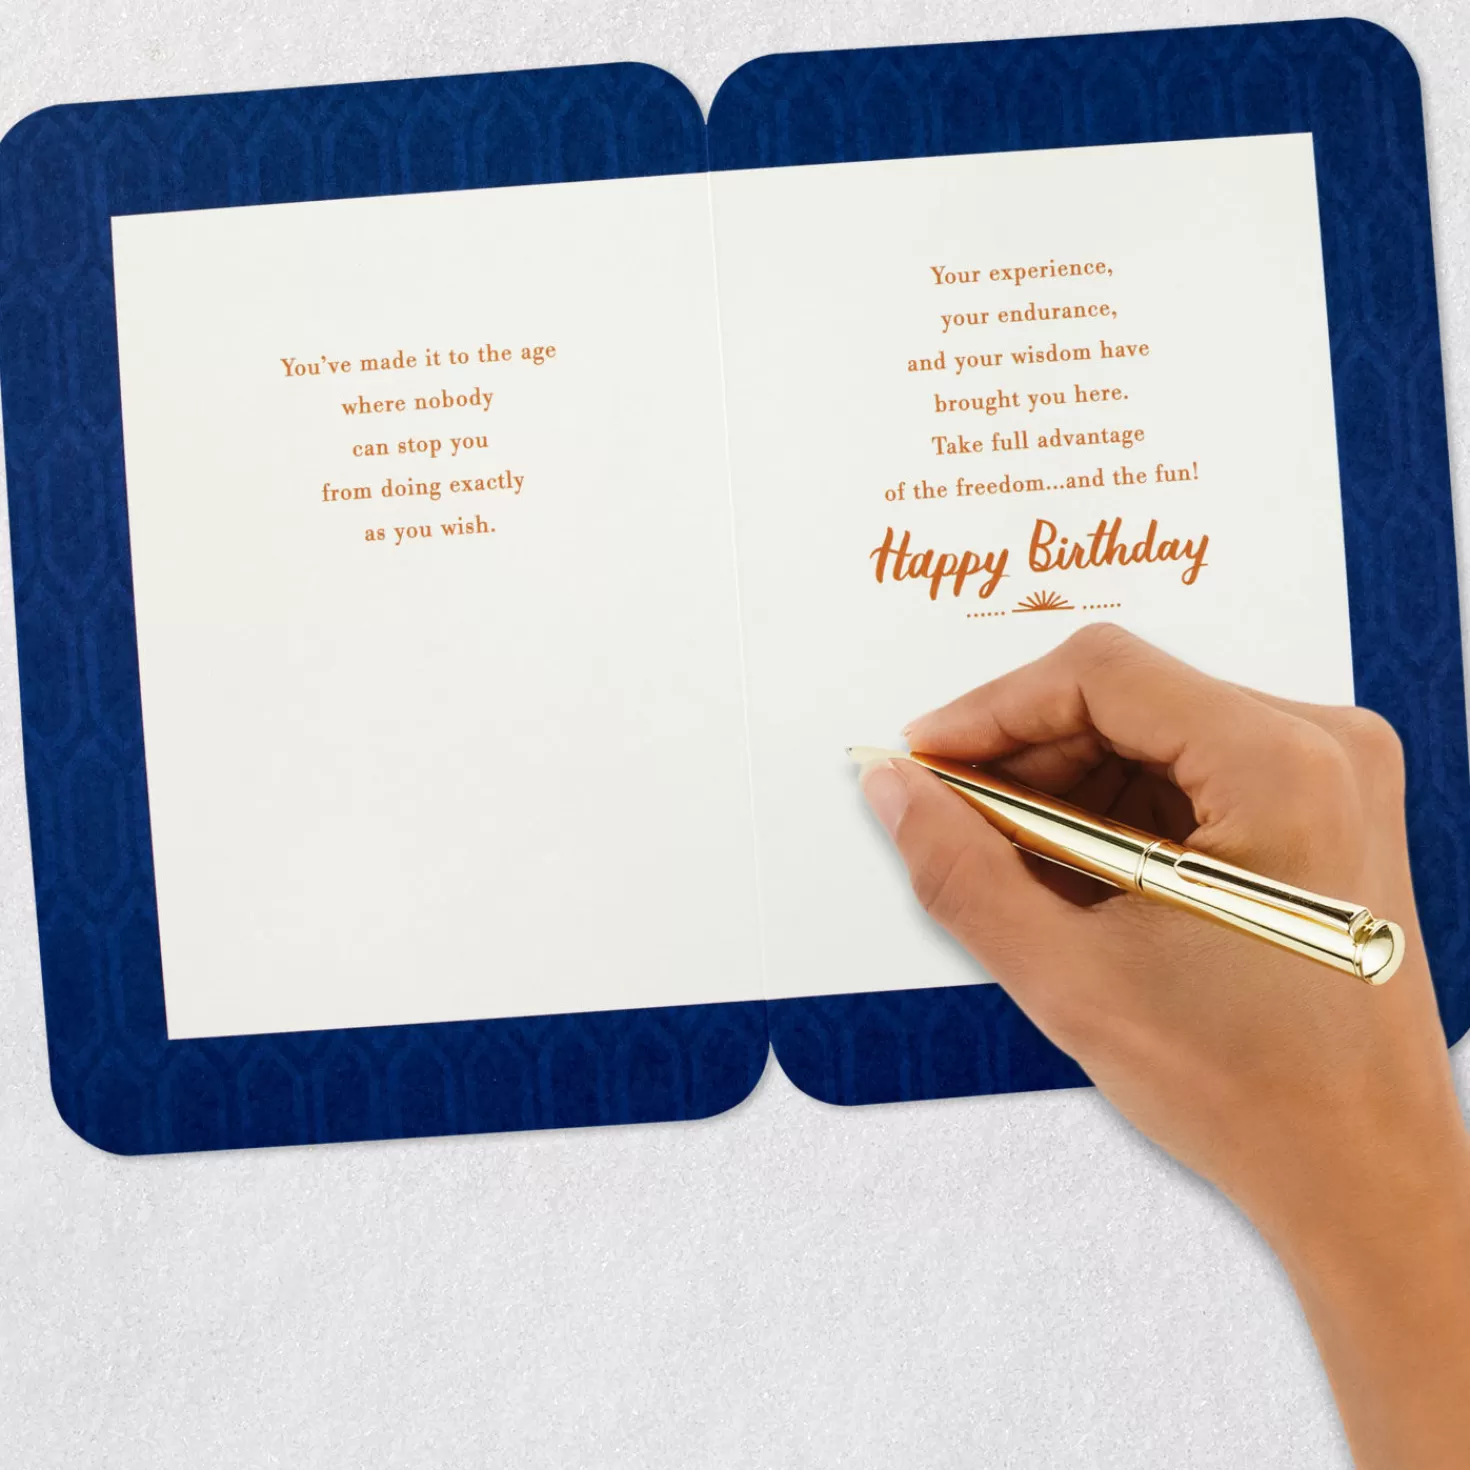 You've made it to the age
where nobody
can stop you
from doing exactly
as you wish.
Your experience,
your endurance,
and your wisdom have
brought you here.
Take full advantage
of the freedom...and the fun!
Happy Birthday